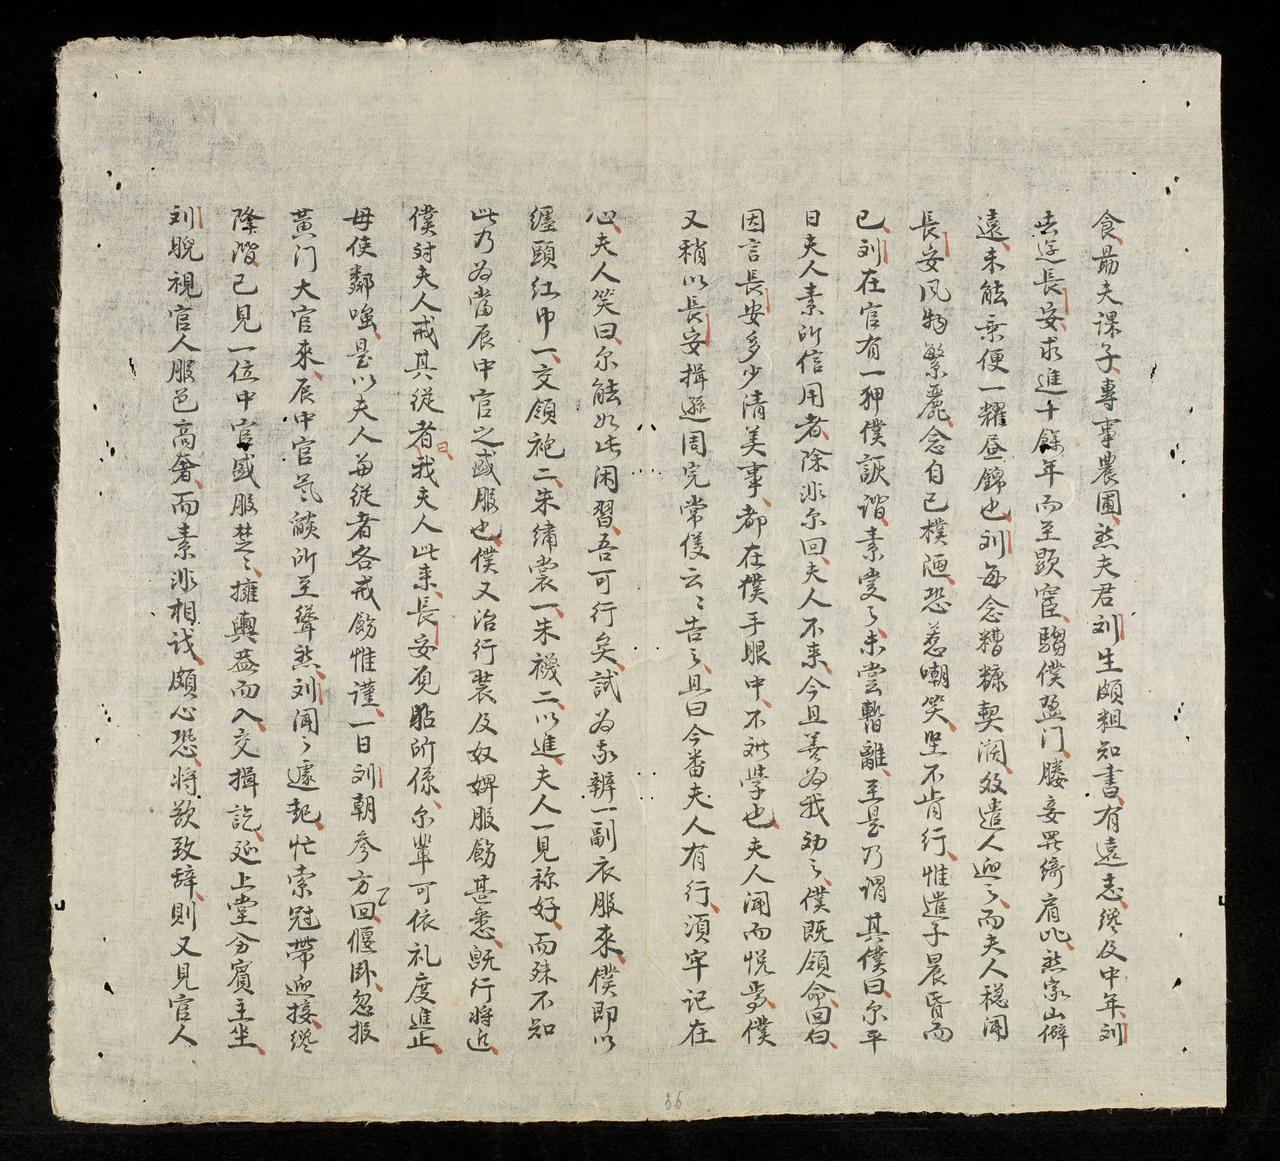 食、勗夫課子、專事農圃、然夫君刘生頗粗知書、有遠志、纔及中年、刘
去遊長安、求進十餘年而至顯宦、騶僕盈门、媵妾羅綺肩比、然家山僻
遠、未能乗便一耀昼錦也、刘每念糟糠契濶、效遣人迎之、而夫人稳聞
長安风物繁麗、念自己樸陋、恐惹嘲笑、坚不肯行、惟遣子晨昏而
已、刘在官有一狎僕詼諧、素爱之、未尝暫離、至是乃谓其僕曰、尔平
日夫人素所信用者、除非尔回、夫人不来、今且善为我劝之、僕既領命、回白、
因言長安多少清美事、都在僕手眼中、不难學也、夫人闻而悦焉、僕
又稍以長安揖遜周完常仪云〻告之、且曰今番夫人有行、須牢记在
心、夫人笑曰、尔能如此闲習、吾可行矣、試为我辦一副衣服来、僕即以
纏頭红巾一、交領袍二、朱繡裳一、朱襪二、以進、夫人一見称好、而殊不知
此乃为當辰中官之盛服也、僕又治行装及奴婢服飾甚悉、既行将近、
僕对夫人戒其従者曰、我夫人此来、長安覓貼所係、尔輩可依礼度進止、
毋使鄰嗤、是以夫人每従者各戒飭惟谨、一日刘朝参方回、偃卧、忽报
黄门大官來、辰中官氣燄所至聳然、刘闻之遽起、忙索冠帶迎接、纔
降階、已見一位中官盛服楚〻、擁輿蓋而入、交揖訖、延上堂分賓主坐、
刘睨視官人服色高奢、而素非相識、頗心恐、将欲致辞、則又見官人
36